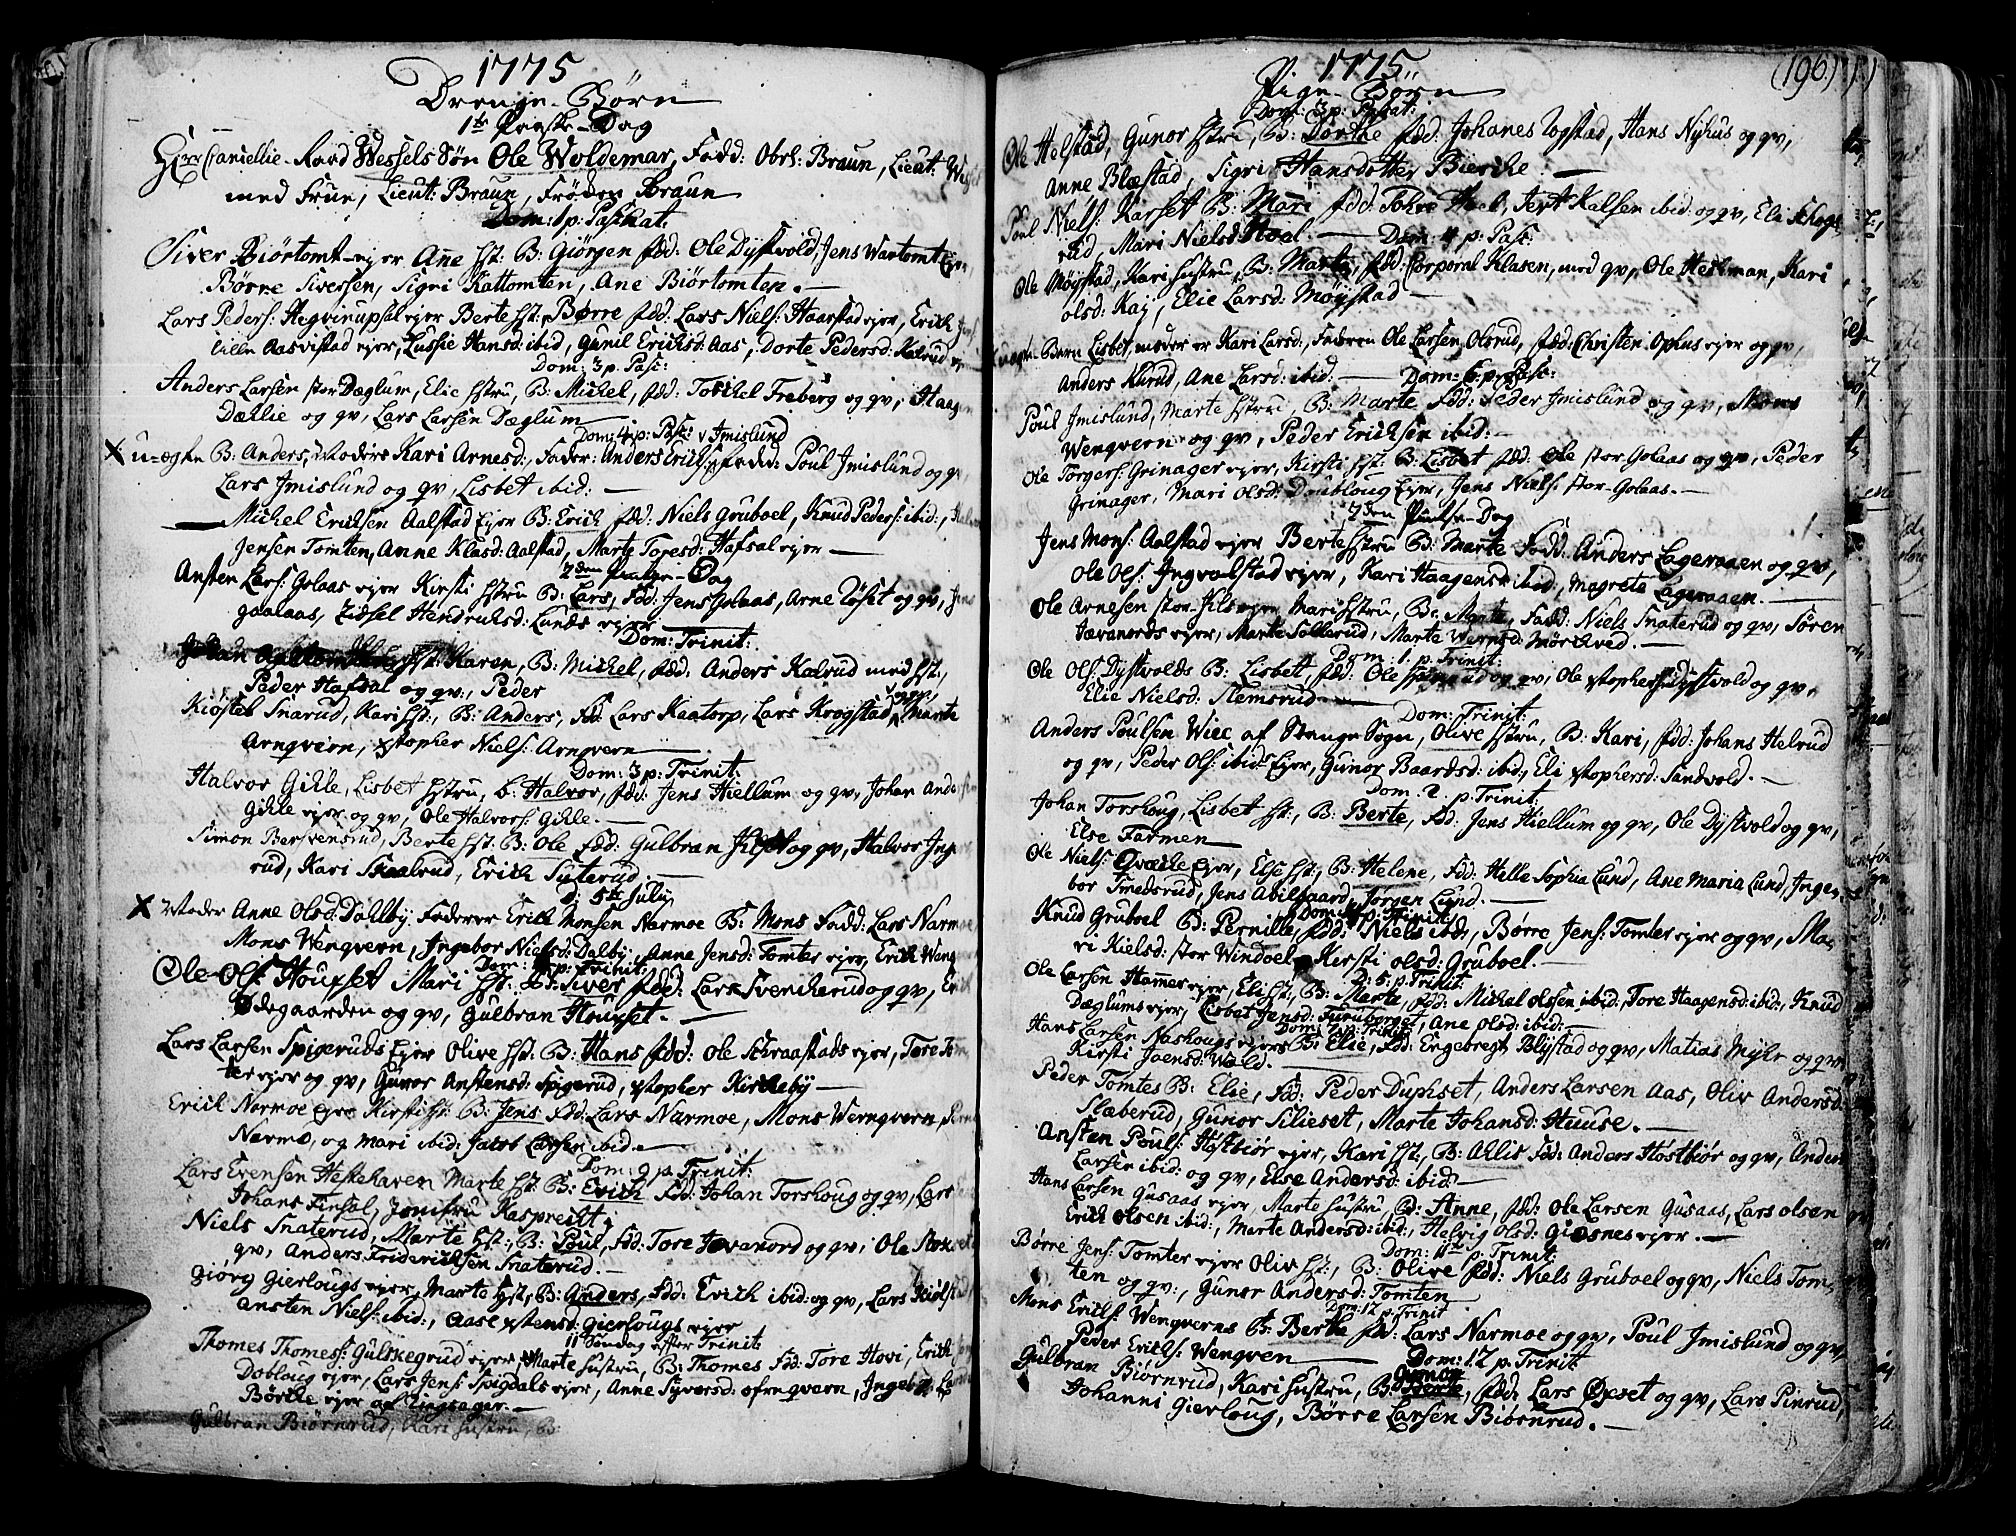 1775
Drenge-Børn
1ste Paaske-Dag
Herr Cancellie-Raad Wessels Søn Ole Woldemar, Fadd: Obrl: Braun, Lieut:
med Frue, Lieut: Braun, Frøden Braun
Dom: 1 p: Paschat:
Siver Biørtomt-ejer Anne hst: B: Giørgen fdd: Ole Dystvold, Jens Wartomt
Børre Siversen, Sigri Kattomten, Ane Biørtomten.
Lars Peders: Hegvinupsal ejer Berte hst: Børre fdd: Lars Niels: Haarstad ejer, Erich
lille Aasvistad ejer, Lussie Hansd: ibid, Gunil Erichsd: Aas, Dorte Pedersd: Kalrud
Dom: 3 p: Pasc:
Anders Larsen stor Dæglum, Elie hstru, B: Michel, fdd: Torchel Freberg og qv, Haagen
Dæhlie og qv, Lars Larsen Dæglum
Dom: 4 p: Pasc: v Imislund
X u-ægte B: Anders, Moders Kari Arnesd:, Fader: Anders Erichs: fadd: Poul Imislund og qv,
Lars Imislund og qv, Lisbet ibid:
Michel Erichsen Aalstad Ejer B: Erich fdd: Niels Gruboel, Knud Peders: ibid:,
Jensen Tomten, Anne Klasd: Aalstad, Marte Toresd: Hafsal ejer
2den Pintse-Dag
Ansten Lars: Golaas ejer Kirsti hstru B: Lars, fdd: Jens Golaas, Arne Løset og qv,
gaalaas, Zidsel Hendrichsd: Lunds ejer
Dom: Trinit:
Johan hst: Karen, B: Michel, fdd: Anders Kalrud med hst:,
Peder Hafsal og qv:, Peder
Kiøstel Snarud, Kari hst:, B: Anders, fdd: Lars Kaatorp, Lars Krogstad ejer, Marte
Arnqvern, xstopher Niels: Arnqvern
Dom: 3 p: Trinit:
Halvor Gikle, Lisbet hstru, B: Halvor, fdd: Jens Hiellum og qv, Johan
Gikle ejer og qv, Ole Halvors: Gikle.
Simon Bersvensrud, Berte hst: B: Ole fdd: Gulbran og qv, Halvor
rud, Kari Skaalrud, Erich Suterud.
D: 5te July
X Moder Anne Olsd: Dahlby Faderer Erich Monsen Narmoe B: Mons Fadd: Lars Narmoe
Mons Wenqvern, Ingebor Nielsd: Dalby, Anne Jensd: Tomter ejer, Erich
Dom: p: Trinit:
Ole Ols: Houfset Mari hst: B: Siver fdd: Lars Svencherud og qv,
Ødegaarden og qv, Gulbran Houfset.
Lars Larsen Spigeruds Ejer Olive hst: B: Hans fdd: Ole Schraastads ejer, Tore
ter ejer og qv, Gunor Anstensd: Spigerud, xstopher Kircheby
Erich Narmoe ejer Kirsti hst: B: Jens fdd: Lars Narmoe, Mons Wernqvern,
Narmo, og Mari ibid: Jacob Larsen ibid.
Dom: 9 p. Trinit:
Lars Evensen Hestehaven Marte hst: B: Erich fdd: Johan Torshoug og qv, Lars
Johans Finsal, Jomfru Kasprecht.
Niels Snaterud, Marte hst:, B: Poul, fdd: Tore Jevanord og qv, Ole
qv, Anders Friderichsen Snaterud.
Giørg Gierlougs ejer, Marte hst, B: Anders, fdd: Erich ibid: og qv, Lars
Ansten Niels: ibid:, Aase xstensd: Gierlougs ejer
11 Søndag efter Trinit:
Thomes Thomess: Gulskegrud ejer, Marte hustru, B: Thomes fdd: Tore Hovi, Erich
Dobloug ejer, Lars Jens: Spigdals ejer, Anne Syversd: Ofrnqvern, Ingebor
Børche ejer af Ringsager.
Gulbran Biørnrud, Kari hustru, B:
1775
Pige-Børn
(196)
Dom: 3 p: Paschat:
Ole Helstad, Gunor hstru, B: Dorthe fdd: Johanes Togstad, Hans Nyhus og qv,
Anne Blæstad, Sigri Hansdotter Bierche
Poul Niels: Karset B: Mari fdd: Tohre Hoel, Jert Kalsen ibid: og qv, Eli
rud, Mari Nielsd: Hoel. Dom: 4 p: Pasc:
Ole Møystad, Kari hustru, B: Marte, fdd: Corporal Klasen, med qv, Ole Heshman, Kari
Olsd: Kaj, Elie Larsd: Møystad
Barn Lisbet, moder er Kari Larsd:, Faderen Ole Larsen Olsrud, fdd: Christen Ophus ejer og qv,
Anders Kurud, Ane Larsd: ibid. Dom: 6 p: Pasc:
Poul Imislund, Marte hstru, B: Marte fdd: Peder Imislund og qv, Mons
Wenqvern og qv, Peder Erichsen ibid:
Ole Torgers: Grinager ejer, Kirsti hst: B: Lisbet fdd: Ole stor Golaas og qv, Peder
Grinager, Mari Olsd: Doubloug Ejer, Jens Niels: stor-Golaas.
2den Pintse-Dag
Jens Mons: Aalstad ejer Berte hstru B: Marte Fadd: Anders Lageraaen og qv,
Ole Ols: Ingvalstad ejer, Kari Haagensd: ibid:, Magrete Lageraaen.
Ole Arnesen stor-Hils ejer, Mari hstru, B: Marte, Fadd: Niels Snaterud og qv, Søren
Jævanords ejer, Marte Sollerud, Marte Wernsd: Mørchved.
Dom: 1. p: Trinit:
Ole Ols: Dystvolds B: Lisbett, fdd: Ole og qv, Ole xstophers: Dystvold og qv,
Elie Nielsd: Slemsrud
Dom: Trinit:
Anders Poulsen Wiec af Stange Sogn, Olive hstru, B: Kari, fdd: Johans Helrud
og qv, Peder Ols: ibid: Ejer, Gunor Baardsd: ibid:, Eli xstophersd: Sandvold.
Dom: 2. p: Trinit:
Johan Torshoug, Lisbet hst:, B: Berte, fdd: Jens Hiellum og qv, Ole Dystvold og qv,
Else Farmen
Ole Niels: Qværle Ejer, Else hst:, B: Helene, fdd: Helle Sophia Lund, Ane Maria Lund, Inge-
bor Smedsrud, Jens Abilgaard, Jørgen Lund.
Dom: 4 p: Trinit:
Knud Gruboel B: Pernille, fdd: Niels ibid:, Børre Jens: Tomter ejer og qv, Ma-
ri Kielsd: stor Windoel, Kirsti Olsd: Gruboel.
D: 5. p: Trinit:
Ole Larsen Hammer ejer, Eli hst:, B: Marte, fdd: Michel Olssen ibid: Tore Haagensd: ibid:, Knud
Dæglums ejer, Lisbet Jensd: Furuberget, Ane Olsd: ibid:
Dom: 7 p: Trinit:
Hans Larsen Naskougs ejer B: Elie, fdd: Engebregt Blystad og qv, Matias Myhr og qv
Kirsti Joensd: Wold.
Peder Tomtes B: Elsie, fdd: Peder Duphset, Anders Larsen Aas, Oliv Andersd:
Slæberud, Gunor Silieset, Marte Johansd: Huuse.
Ansten Pouls: Høstbiør ejer, Kari hst:, B: Ahlis fdd: Anders Høstbiør og qv, Anders
Larsen ibid: og qv, Else Andersd: ibid:
Hans Larsen Gusaas ejer, Marte hustru, B: Anne, fdd: Ole Larsen Gusaas, Lars Olsen
Erich Olsen ibid:, Marte Andersd: ibid:, Helvig Olsd: Giøsnes ejer.
Dom: 11te p: Trinit:
Børre Jens: Tomter ejer Oliv hst:, B: Olive fdd: Niels Gruboel og qv, Niels Tom-
ten og qv:, Gunor Andersd: Tomten
Dom: 12 p: Trinit
Mons Erichs: Wenqverns B: Berthe fdd: Lars Narmoe og qv, Poul Imislund og qv,
Peder Erichs: Wenqven
Dom: 12 p: Trinit:
Gulbran Biørnrud, Kari hustru, B: Gunor, fdd: Lars Øxset og qv, Lars Pinrud,
Johanni Gierloug, Børre Larsen Biørnrud.